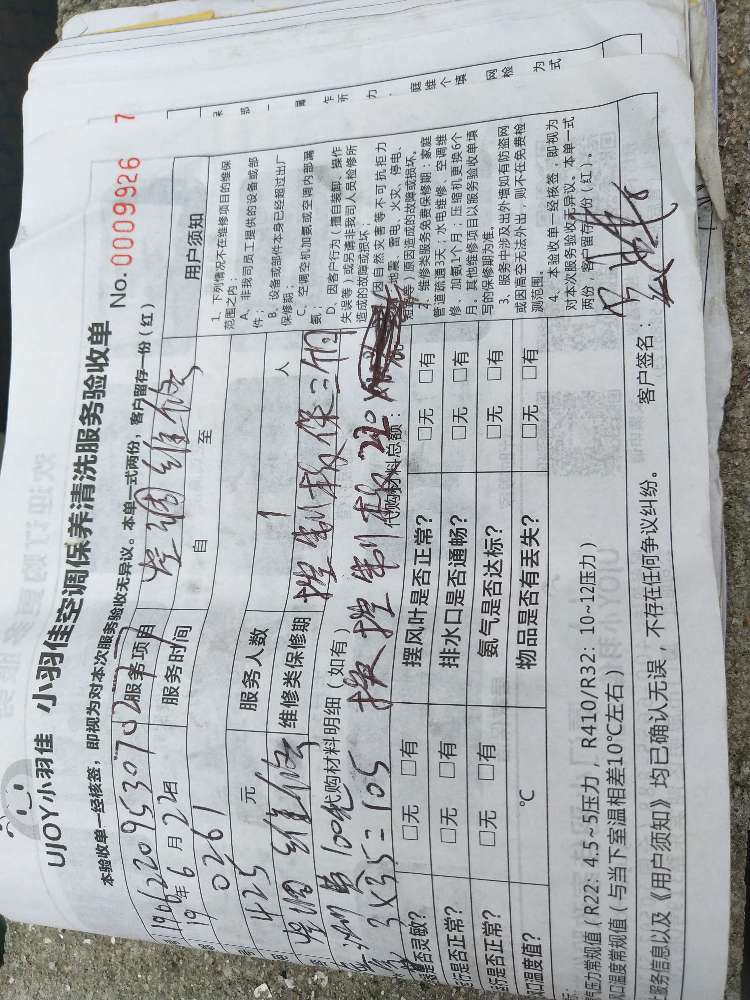 UJOY小羽佳 小羽佳空调保养清洗服务验收单
No. 0009926 7
本验收单一经核签，即视为对本次服务验收无异议。本单一式两份，客户留存一份（红）
服务项目 空调维修
19年6月22日 服务时间 自 至
0261
425 元 服务人数 1 人
空调 维修 维修类保修期 控制板保二个月
100 代购材料明细（如有）
3×35=105 换控制板220 代购材料总额：
是否灵敏？ □无 □有 摆风叶是否正常？ □无 □有
行是否正常？ □无 □有 排水口是否通畅？ □无 □有
行是否正常？ □无 □有 氨气是否达标？ □无 □有
口温度值？ ℃ 物品是否有丢失？ □无 □有
用户须知
1、下列情况不在维修项目的维保
范围之内：
A、非我司员工提供的设备或部
件；
B、设备或部件本身已经超过出厂
保修期；
C、空调空机加氨或空调内部漏
氨；
D、因客户行为（擅自装卸、操作
失误等）或另请非我司人员检修所
造成的故障或损坏；
因自然灾害等不可抗拒力
地震、雷电、火灾、停电、
等）原因造成的故障或损坏。
2、维修类服务免费保修期：家庭
管道疏通3天；水电维修、空调维
修、加氨1个月；压缩机更换6个
月。其他维修项目以服务验收单填
写的保修期为准。
3、服务中涉及出外墙如有防盗网
或因高空无法外出，则不在免费检
测范围。
4、本验收单一经核签，即视为
对本次服务验收无异议。本单一式
两份，客户留存一份（红）。
压力常规值（R22：4.5~5压力，R410/R32：10~12压力）
口温度常规值（与当下室温相差10℃左右）
服务信息以及《用户须知》均已确认无误，不存在任何争议纠纷。 客户签名：